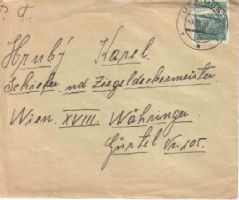 P. T.
Hrubý Karel.
Schiefer und Ziegeldeckermeister
Wien XVIII. Währinger.
Gürtel Nr. 105.